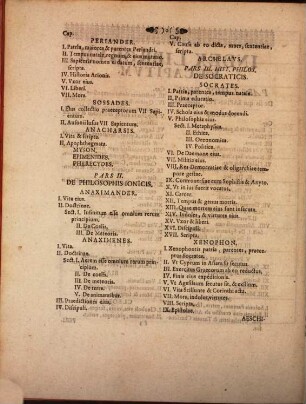 Cap.
PERIANDER.
I. Patria, majores & parentes Periandri.
II. Tempus natale, regnum & mors
III. Sapientis nomen
IV. Historia Arionis.
V. Vxor ejus.
VI. Liberi.
VII. Mors.
SOSIADES.
I. Ejus collectio praeceptorum VII Sapientum.
II. Ausonii lusus VII Sapientum.
ANACHARSIS.
I. Vita & scripta.
II. Apophthegmata.
MYSON,
EPIMENIDES,
PHERECYDES.
PARS II.
DE PHILOSOPHIS IONICIS.
ANAXIMANDER.
I. Vita ejus.
II. Doctrina.
Sect. I. Infinitum esse omnium rerum principium.
II. De Coelis.
III. De Meteoris.
ANAXIMENES.
I. Vita.
II. Doctrina.
Sect. I. Aerem esse omnium rerum principium.
II. De coelis.
III. De meteoris.
IV. De terra.
V. De animantibus.
III. Praedictiones
IV. Discipuli.
Cap.
V. Causa ab eo dicta, mors, sententiae, scripta.
ARCHELAVS.
PARS III. HIST. PHILOS.
DE SOCRATICIS.
SOCRATES.
I. Patria, parentes, tempus natale.
II. Prima educatio.
III. Praeceptor.
IV. Schola ejus & modus docendi.
V. Philosophia ejus.
Sect. I. Metaphysica
II. Ethica.
III. Oeconomica.
IV. Politica.
VI. De Daemone ejus.
VII. Militia ejus.
VIII. Res Democratiae & oligarchiae tempore gestae.
IX. Contentiones cum Sophistis & Anyto.
XII. Tempus & genus mortis.
XIII. Quae mortem ejus sint insecuta.
XIV. Indoles, & virtutes ejus.
XV. Vxor & liberi.
XVI. Discipuli.
XVII. Scripta.
XENOPHON.
I. Xenophontis patria, parentes, praeceptor Socrates.
II. Vt Cyrum in Asiam sit secutus.
III. Exercitus Graecorum ab eo reductus.
IV. Finis ejus expeditionis.
V. Vt Agesilaum secutus sit, & exilium.
VI. Vita Scillunte & Corinthi acta.
VII. Mors,
VIII. Scripta.
IX. Epistolae.
AESCHI-